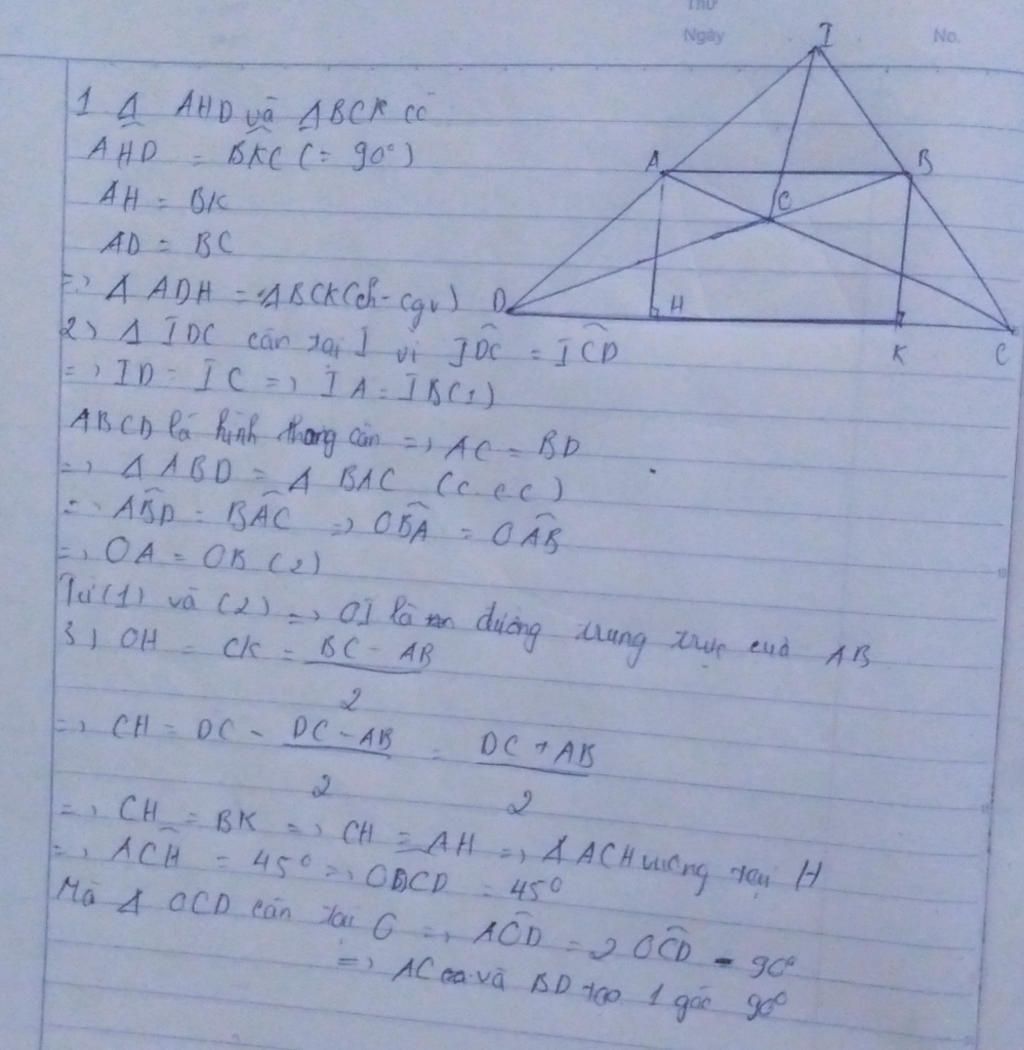 Thứ
Ngày
No.
I
A
B
O
D
H
K
C
1 Δ AHD và ΔBCK có
AHD = BKC (= 90°)
AH = BK
AD = BC
=> Δ ADH = ΔBCK(ch - cgv)
2) Δ IDC cân tại I vì IDC = ICD
=> ID = IC => IA = IB(1)
ABCD là hình thang cân => AC = BD
=> Δ ABD = Δ BAC (c.c.c)
=> ABD = BAC => OBA = OAB
=> OA = OB (2)
Từ (1) và (2) => OI là đường trung trực của AB
3) OH = CK = BC - AB
2
=> CH = DC - DC - AB = DC + AB
2 2
=> CH = BK => CH = AH => ΔACH vuông tại H
=> ACH = 45° => OCD = 45°
Mà Δ OCD cân tại O => AOD = 2 OCD = 90°
=> AC và BD tạo 1 góc 90°